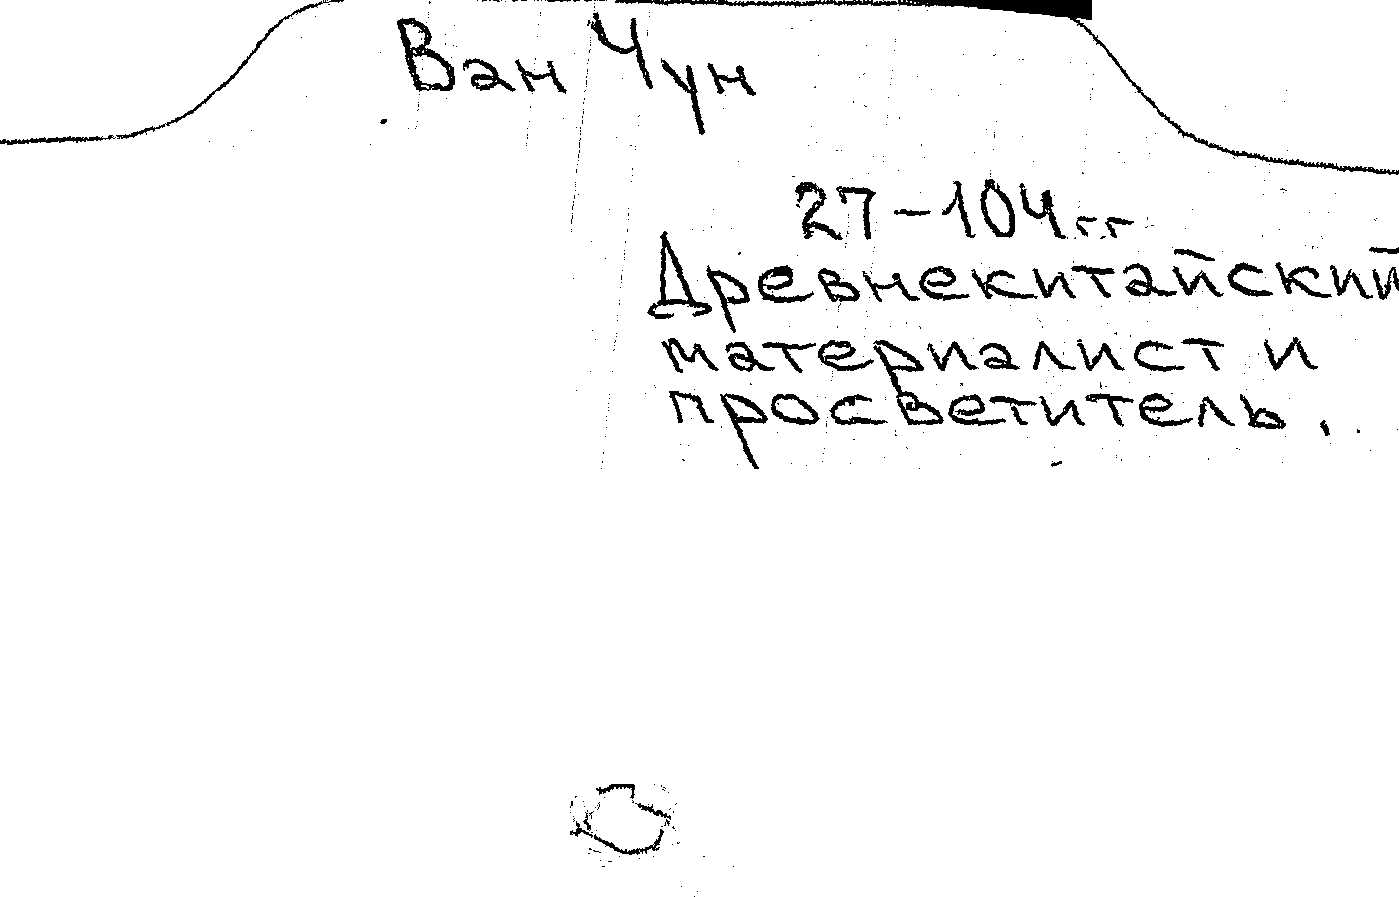 Ван Чун
27-104 гг
Древнекитайский
материалист и
просветитель.